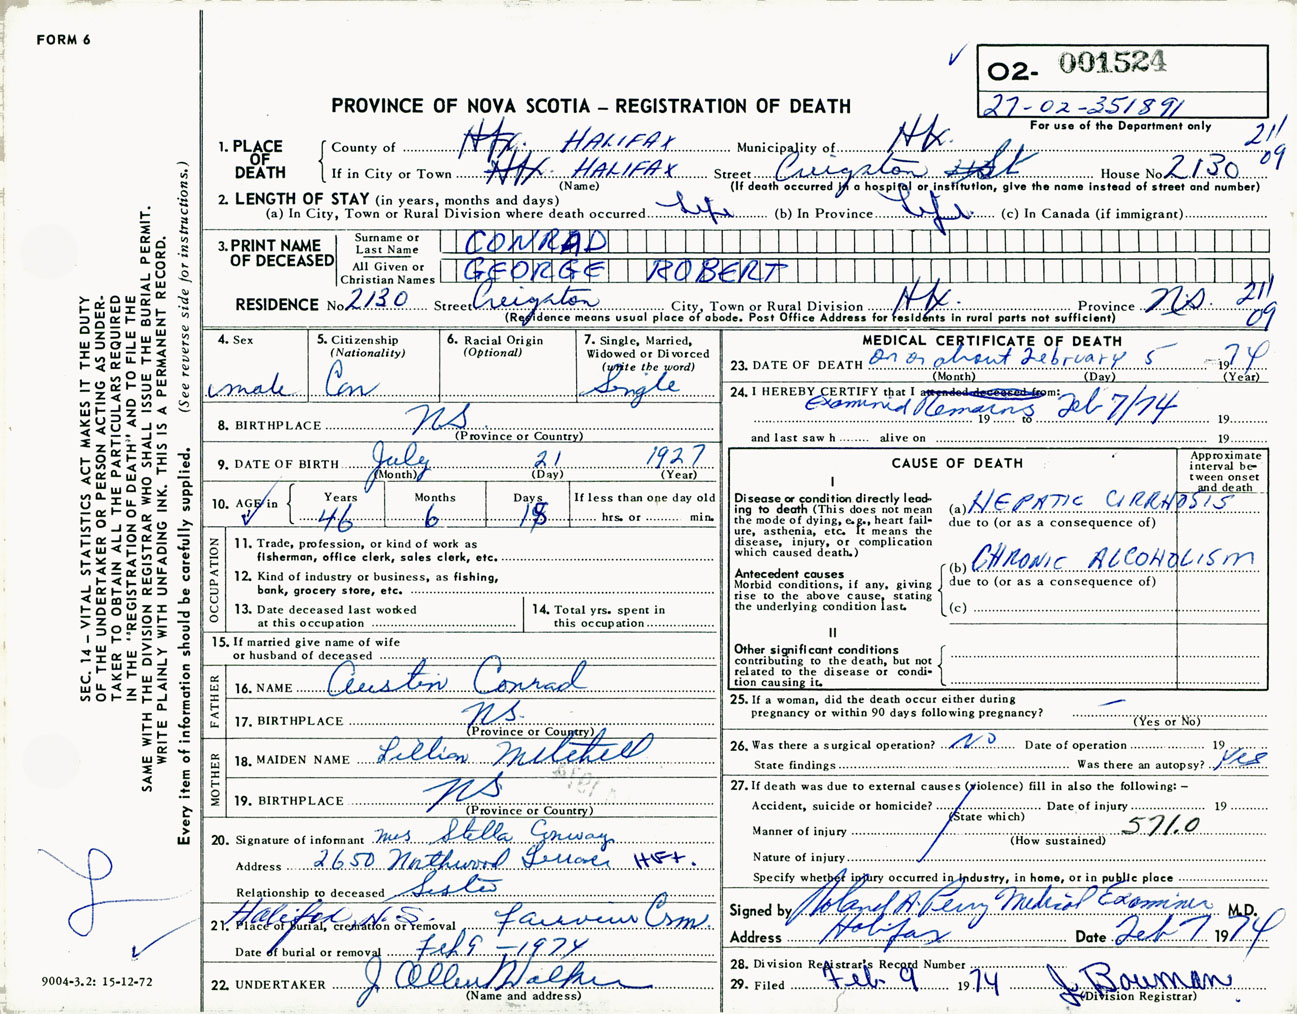 FORM 6
O2- 001524
27-02-351891
For use of the Department only
PROVINCE OF NOVA SCOTIA – REGISTRATION OF DEATH
1. PLACE OF DEATH
County of Hfx. HALIFAX Municipality of Hfx. 211 09
If in City or Town Hfx. HALIFAX Street Creighton St House No. 2130
(Name) (If death occurred in a hospital or institution, give the name instead of street and number)
2. LENGTH OF STAY (in years, months and days)
(a) In City, Town or Rural Division where death occurred Life (b) In Province Life. (c) In Canada (if immigrant)
3. PRINT NAME OF DECEASED
Surname or Last Name CONRAD
All Given or Christian Names GEORGE ROBERT
RESIDENCE No 2130 Street Creighton City, Town or Rural Division Hfx. Province N.S. 211 09
(Residence means usual place of abode. Post Office Address for residents in rural parts not sufficient)
4. Sex male
5. Citizenship (Nationality) Can
6. Racial Origin (Optional)
7. Single, Married, Widowed or Divorced (write the word) Single
8. BIRTHPLACE NS
(Province or Country)
9. DATE OF BIRTH July 21 1927
(Month) (Day) (Year)
10. AGE in Years 46 Months 6 Days 15 If less than one day old hrs. or min.
OCCUPATION
11. Trade, profession, or kind of work as fisherman, office clerk, sales clerk, etc.
12. Kind of industry or business, as fishing, bank, grocery store, etc.
13. Date deceased last worked at this occupation
14. Total yrs. spent in this occupation
15. If married give name of wife or husband of deceased
FATHER
16. NAME Austin Conrad
17. BIRTHPLACE NS.
(Province or Country)
MOTHER
18. MAIDEN NAME Lillian Mitchell
19. BIRTHPLACE NS
(Province or Country)
20. Signature of informant Mrs Stella Conway
Address 2650 Northwood Terrace HFX.
Relationship to deceased Sister
Halifax, N.S. Fairview Crm.
21. Place of burial, cremation or removal
Date of burial or removal Feb 9 – 1974
22. UNDERTAKER J Allen Walker
(Name and address)
MEDICAL CERTIFICATE OF DEATH
23. DATE OF DEATH On or about February 5 1974
(Month) (Day) (Year)
24. I HEREBY CERTIFY that I attended deceased from:
Examined Remains Feb 7/74
19 to 19
and last saw h alive on 19
CAUSE OF DEATH
Approximate interval between onset and death
I
Disease or condition directly leading to death (This does not mean the mode of dying, e.g., heart failure, asthenia, etc. It means the disease, injury, or complication which caused death.)
(a) HEPATIC CIRRHOSIS
due to (or as a consequence of)
Antecedent causes
Morbid conditions, if any, giving rise to the above cause, stating the underlying condition last.
(b) CHRONIC ALCOHOLISM
due to (or as a consequence of)
(c)
II
Other significant conditions
contributing to the death, but not related to the disease or condition causing it.
25. If a woman, did the death occur either during pregnancy or within 90 days following pregnancy? –
(Yes or No)
26. Was there a surgical operation? No Date of operation 19
State findings Was there an autopsy? Yes
27. If death was due to external causes (violence) fill in also the following: –
Accident, suicide or homicide? Date of injury 19
(State which)
Manner of injury 571.0
(How sustained)
Nature of injury
Specify whether injury occurred in industry, in home, or in public place
Signed by Roland A. Perry Medical Examiner M.D.
Address Halifax Date Feb 7 1974
28. Division Registrar's Record Number
29. Filed Feb 9 1974 J. Bowman
(Division Registrar)
SEC. 14 – VITAL STATISTICS ACT MAKES IT THE DUTY
OF THE UNDERTAKER OR PERSON ACTING AS UNDER-
TAKER TO OBTAIN ALL THE PARTICULARS REQUIRED
IN THE "REGISTRATION OF DEATH" AND TO FILE THE
SAME WITH THE DIVISION REGISTRAR WHO SHALL ISSUE THE BURIAL PERMIT.
WRITE PLAINLY WITH UNFADING INK. THIS IS A PERMANENT RECORD.
Every item of information should be carefully supplied. (See reverse side for instructions.)
9004-3.2: 15-12-72